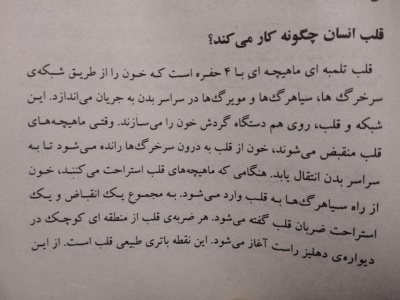 قلب انسان چگونه کار می‌کند؟
قلب تلمبه ای ماهیچه ای با ۴ حفره است که خون را از طریق شبکه‌ی
سرخرگ ها، سیاهرگ‌ها و مویرگ‌ها در سراسر بدن به جریان می‌اندازد. این
شبکه و قلب، روی هم دستگاه گردش خون را می‌سازند. وقتی ماهیچه‌های
قلب منقبض می‌شوند، خون از قلب به درون سرخرگ‌ها رانده می‌شود تا به
سراسر بدن انتقال یابد. هنگامی که ماهیچه‌های قلب استراحت می‌کنند، خون
از راه سیاهرگ‌ها به قلب وارد می‌شود. به مجموع یک انقباض و یک
استراحت ضربان قلب گفته می‌شود. هر ضربه‌ی قلب از منطقه ای کوچک در
دیواره‌ی دهلیز راست آغاز می‌شود. این نقطه باتری طبیعی قلب است. از این